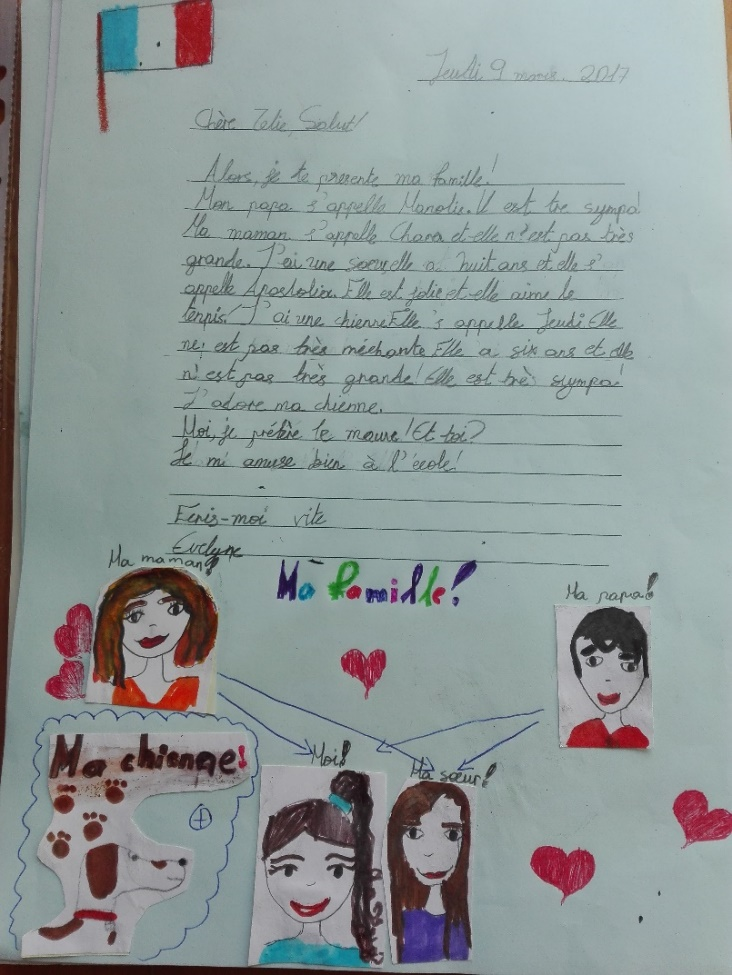 Jeudi 9 mars. 2017
Chère Zelie, Salut!
Alors, je te presente ma famille!
Mon papa s'appelle Manolis. Il est tre sympa!
Ma maman s'appelle Chara et elle n'est pas très
grande. J'ai une soeur, elle a huit ans et elle s'
appelle Apostolia. Elle est jolie et elle aime le
tennis! J'ai une chienne. Elle s'appelle Jeudi. Elle
ne est pas très méchante. Elle a six ans et elle
n'est pas très grande! Elle est très sympa!
J'adore ma chienne.
Moi, je préfère le mauve! Et toi?
Je mi amuse bien à l'école!
Ecris-moi vite
Evelyne
Ma maman!
Ma famille!
Ma papa!
Ma chienne!
Moi!
Ma sœur!